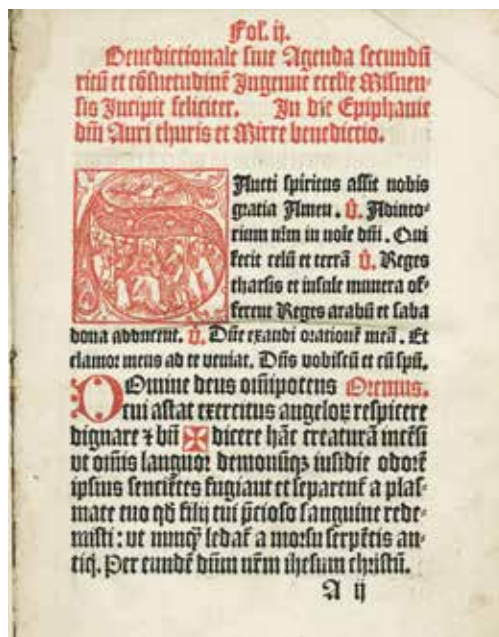 Fol. ij.
Benedictionale siue Agenda secundũ
ritũ et cõsuetudinẽ Ingenue ecclie Misnen-
sis Incipit feliciter. In die Epiphanie
dñi Auri thuris et Mirre benedictio.
SAncti spiritus assit nobis
gratia Amen. V̈. Adiuto-
rium nr̃m in noĩe dñi. Qui
fecit celũ et terrã V̈. Reges
tharsis et insule munera of-
ferent Reges arabũ et saba
dona adducent. V̈. Dñe exaudi orationẽ meã. Et
clamor meus ad te veniat. Dñs vobiscũ et cũ spũ.
DOmine deus om̃ipotens Oremus.
cui astat exercitus angeloꝝ respicere
dignare ⁊ bñ ✠ dicere hãc creaturã incẽsi
vt om̃is languor demonũqꝫ insidie odorẽ
ipsius senciẽtes fugiant et separent᷑ a plas-
mate tuo qḋ filij tui p̃cioso sanguine rede-
misti: vt nunqꝫ̃ ledat᷑ a morsu serpẽtis an-
tiq̃. Per eundẽ dñm nr̃m ihesum christũ.
A ij